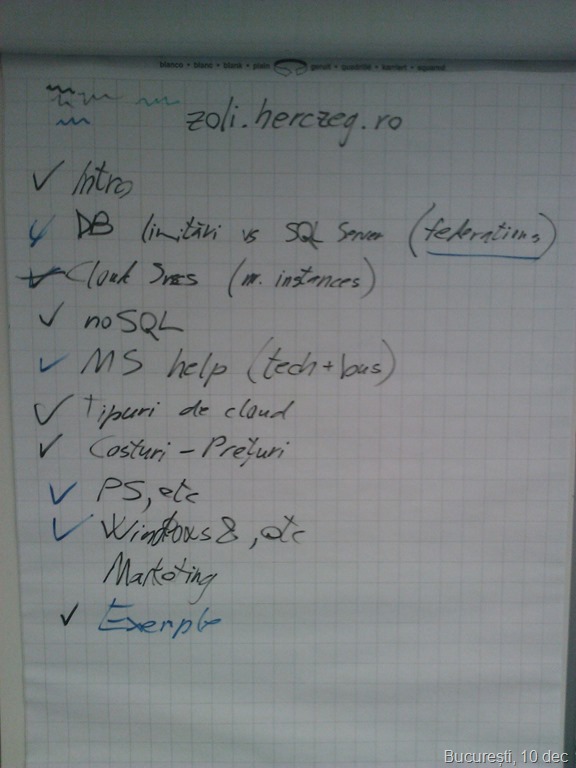 blanco • blanc • blank • plain
geruit • quadrillé • kariert • squared
zoli.herczeg.ro
Intro
DB limitări vs SQL Server (federations)
Cloud Svcs (m. instances)
noSQL
MS help (tech+bus)
Tipuri de cloud
Costuri - Prețuri
PS, etc
Windows 8, etc
Marketing
Exemple
București, 10 dec